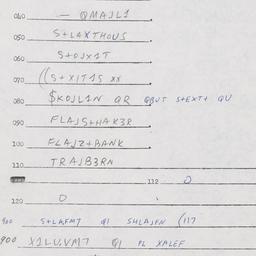 040 — QMAJL1
050 S+LAXTHOUS
060 S+OJX1T
070 ((S+XIT1S XX
080 $KOJL1N QR QBUT S+EXT+ QU
090 FLAJS+HAK3R
100 FLAJZ+BANK
110 TRAJB3RN
112 0
120 0
900 S+LAFMT QI SHLAJFN (117
900 X1LU,VM7 QI PL XALEF